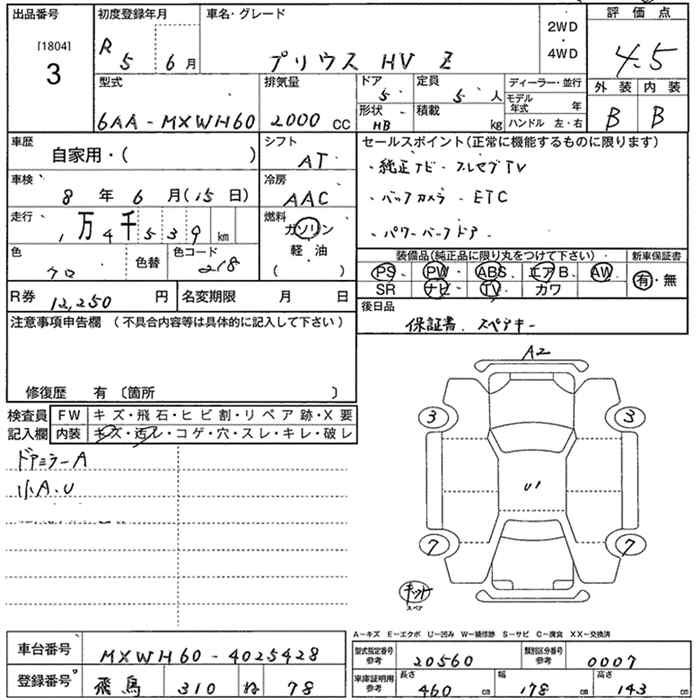 出品番号 初度登録年月 車名・グレード 2WD 評 価 点
[1804] R 5 6 月 プリウス HV Z 4WD 4.5
3
型式 排気量 ドア 5 定員 5 人 ディーラー・並行 外 装 内 装
形状 HB 積載 kg モデル年式 年 B B
6AA-MXWH60 2000 CC ハンドル 左・右
車歴 自家用・( ) シフト AT セールスポイント(正常に機能するものに限ります)
・純正ナビ・フルセグTV
車検 8 年 6 月(15日) 冷房 AAC ・バックカメラ・ETC
走行 1万4千539 km 燃料 ガソリン ・パワーバックドア
軽・油
( )
装備品(純正品に限り丸をつけて下さい) 新車保証書
色 クロ 色替 色コード 218 PS PW ABS エアB AW 有・無
SR ナビ TV カワ
R券 12,250 円 名変期限 月 日 後日品
保証書、スペアキー
注意事項申告欄 (不具合内容等は具体的に記入して下さい)
修復歴 有 〔箇所 〕
検査員 FW キズ・飛石・ヒビ割・リペア跡・X要
記入欄 内装 キズ・汚レ・コゲ・穴・スレ・キレ・破レ
ドアミラーA
小A.U
A2
3 3
U1
7 7
キット
スペア
A-キズ E-エクボ U-凹み W-補修跡 S-サビ C-腐食 XX-交換済
車台番号 MXWH60-4025428 型式指定番号 参考 20560 類別区分番号 参考 0007
登録番号 飛鳥 310 ね 78 車庫証明用 参考 長さ 460 cm 幅 178 cm 高さ 143 cm